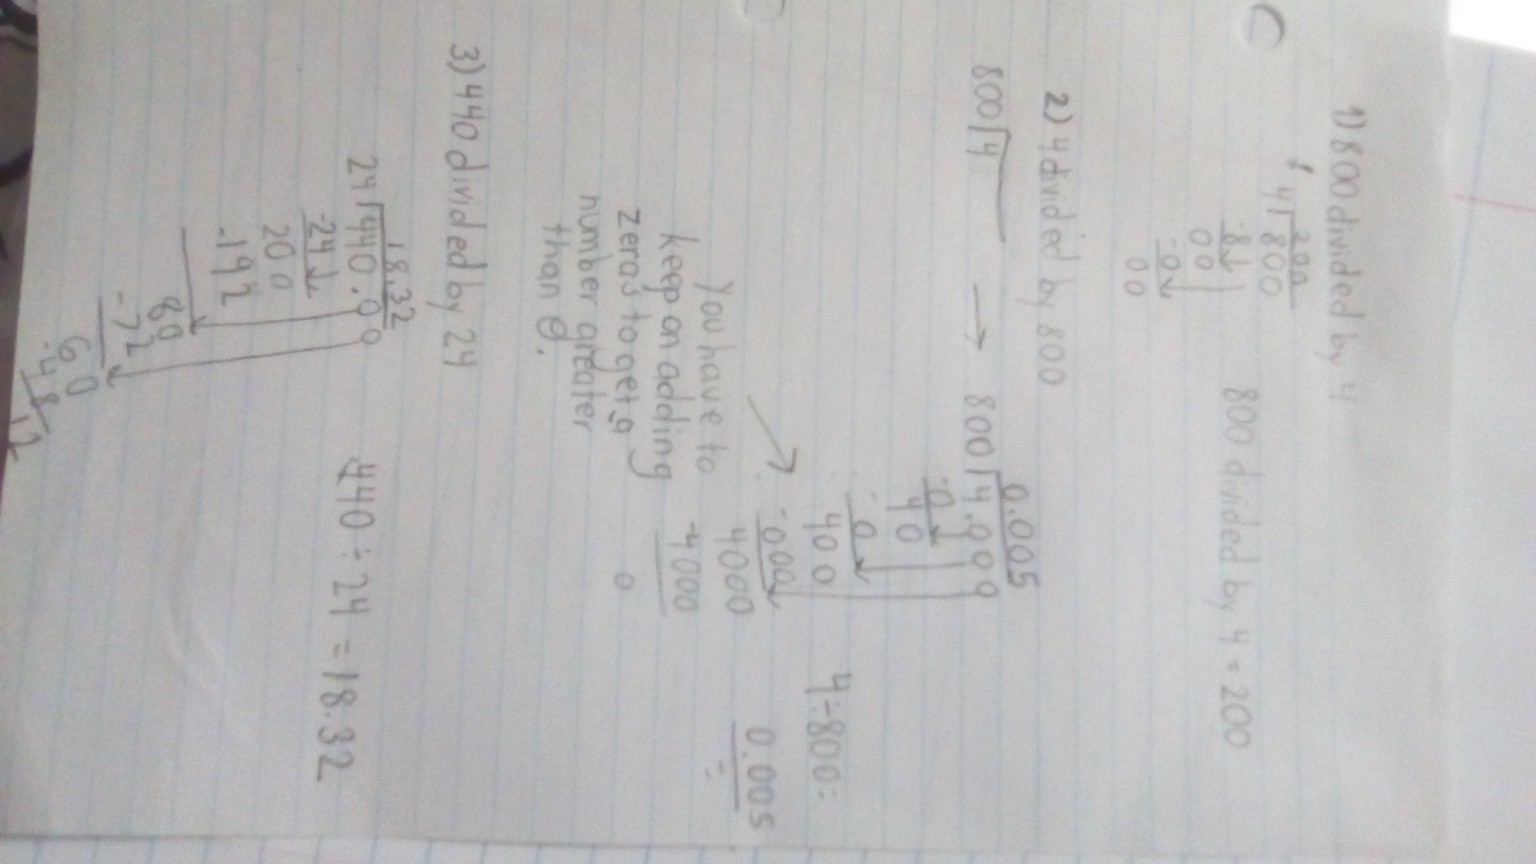 1) 800 divided by 4
200
4 800
-8
00
-0
00
800 divided by 4 = 200
2) 4 divided by 800
800 4 → 800 4.000
0.005
-0
40
-0
400
-000
4000
-4000
0
You have to
keep on adding
zeros to get a
number greater
than 0.
4÷800=
0.005
3) 440 divided by 24
18.32
24 440.00
-24
200
-192
80
-72
60
-48
12
440 ÷ 24 = 18.32